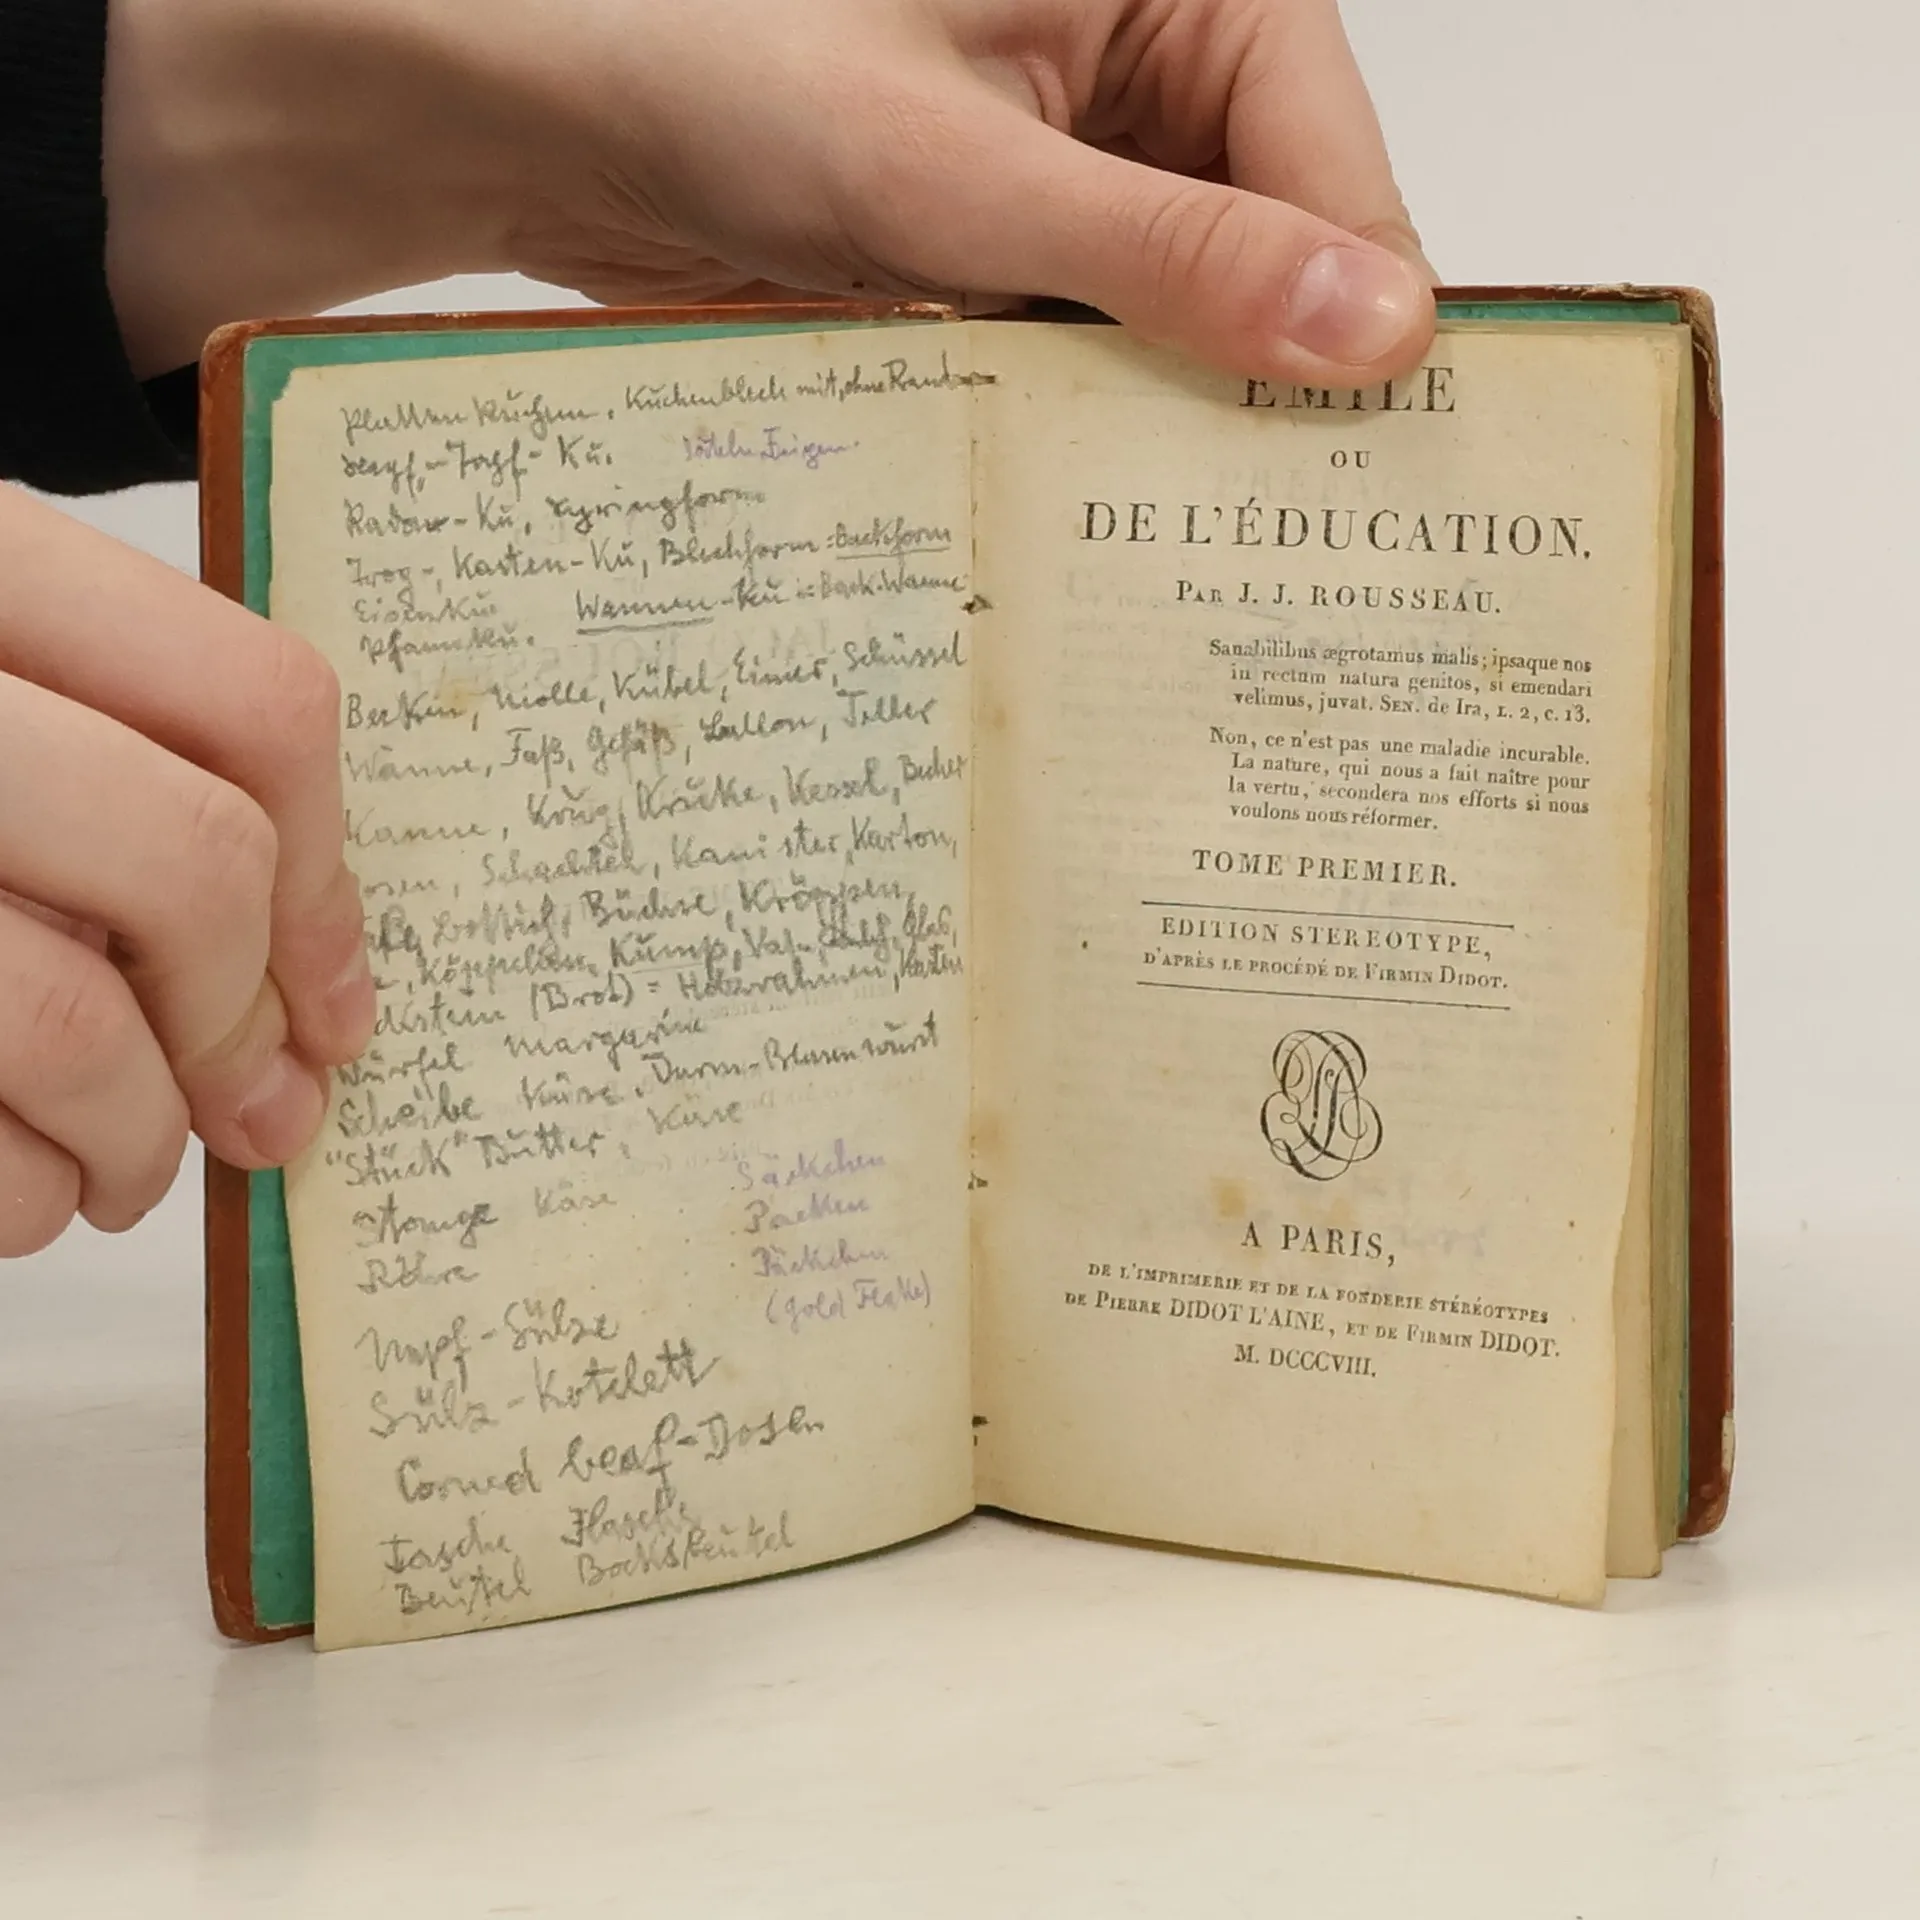 Platten Kuchen. Kuchenblech mit, ohne Rand
Napf-Topf-Kŭ.
Radon-Kŭ, Springform
Trog-, Kasten-Kŭ, Blechform = Backform
EisenKŭ Wannen-Kŭ = Back-Wanne
PfannKŭ.
Becken, Molle, Kübel, Eimer, Schüssel
Wanne, Faß, Gefäß, Ballon, Teller
Kanne, Krug, Krŭke, Kessel, Becher
osen, Schachtel, Kanister, Karton,
Bottich, Büchse, Kröppen,
Köppchen, Kŭmp, Glas,
(Brot) = Holzrahmen, Kasten
Würfel Margarine
Scheibe Käse, Darm-Blasenwŭrst
"Stück" Bŭtter, Käse
Stange Käse
Röhre
Napf-Sülze
Sülz-Kotelett
Corned beaf-Dosen
Tasche Flasche
Beŭtel Bocksbeŭtel
Säckchen
Packen
Päckchen
(Gold Flake)
EMILE
OU
DE L'ÉDUCATION.
PAR J. J. ROUSSEAU.
Sanabilibus ægrotamus malis; ipsaque nos
in rectum natura genitos, si emendari
velimus, juvat. SEN. de Ira, L. 2, c. 13.
Non, ce n'est pas une maladie incurable.
La nature, qui nous a fait naître pour
la vertu, secondera nos efforts si nous
voulons nous réformer.
TOME PREMIER.
EDITION STEREOTYPE,
D'APRÈS LE PROCÉDÉ DE FIRMIN DIDOT.
A PARIS,
DE L'IMPRIMERIE ET DE LA FONDERIE STÉRÉOTYPES
DE PIERRE DIDOT L'AINE, ET DE FIRMIN DIDOT.
M. DCCCVIII.